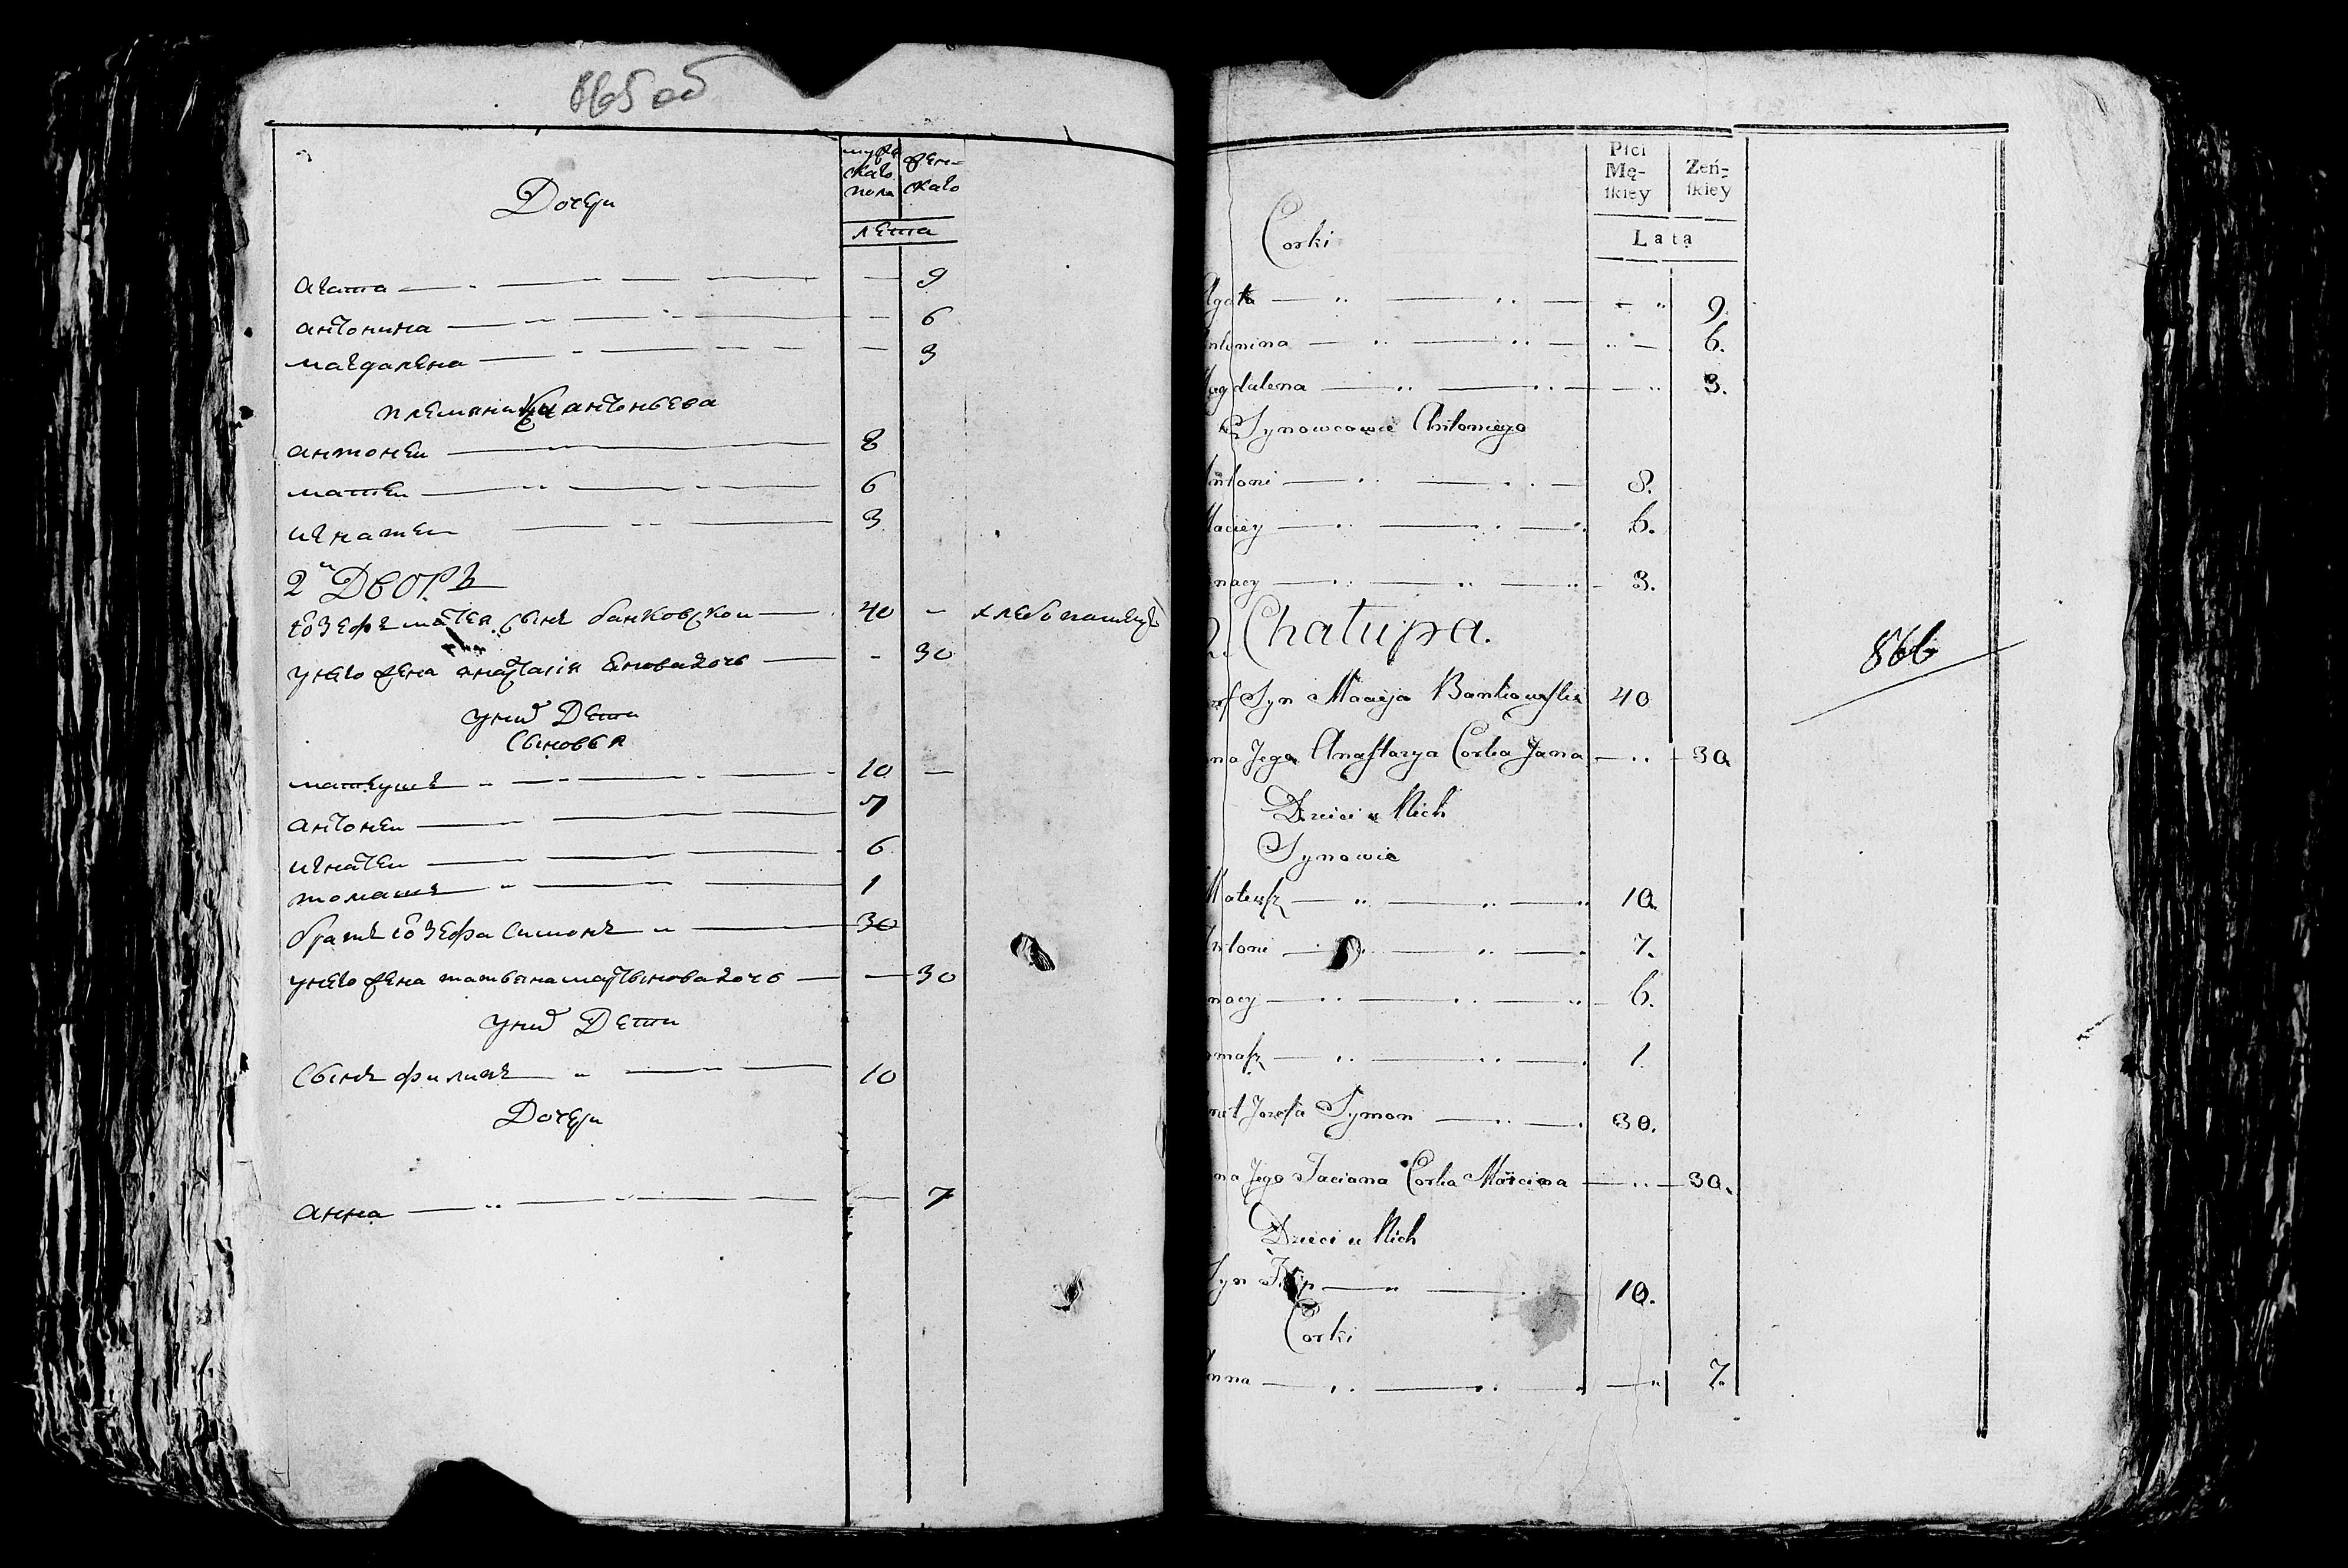 865 об
мужескаго пола
женскаго
Дочери
лета
агата 9
антонина 6
магдалена 3
племяники антоньева
антонеи 8
матеи 6
игнатеи 3
2и Дворъ
Иозефъ матея сынъ банковскои 40 – хлебопашецъ
унего жена анастасія Янова дочь – 30
уних Дети
Сыновья
матеушъ 10 –
антонеи 7
игнатеи 6
томашъ 1
братъ Иозефа Симонъ 30
унего жена татьяна мартынова дочь 30
уних Дети
Сынъ филипъ 10
Дочери
анна 7
Płci Mę-ſkiey
Żeń-ſkiey
Corki
Lata
Agata 9.
ntonina 6.
Magdalena 3.
Synowcowie Antoniego
Antoni 8.
Maciey 6.
nacy 3.
2. Chałupa.
zef Syn Macieja Bankowſki 40
na Jego Anaſtazya Corka Jana 30.
Dzieci u Nich
Synowie
Mateuſz 10.
Antoni 7.
nacy 6.
omaſz 1.
rat Jozefa Symon 30.
na Jego Taciana Corka Marcina 30.
Dzieci u Nich
Syn 10.
Corki
Anna 7.
866